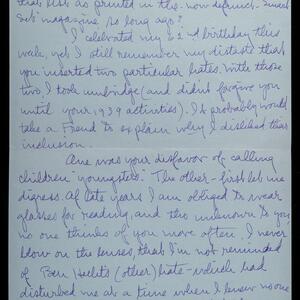 hates list as printed in the now defunct Smart
Set" magazine so long ago?
I celebrated my 62nd birthday this
week, yet I still remember my distaste that
you inserted two particular hates. With those
two I took umbridge (and didn't forgive you
until your 1939 activities). It probably would
take a Freud to explain why I disliked their
inclusion.
One was your disfavor of calling
children "youngsters". The other - first let me
digress. Of late years I am obliged to wear
glasses for reading, and tho unknown to you
no one thinks of you more often. I never
blow on the lenses, that I'm not reminded
of Ben Hecht's (other) hate - which had
disturbed me at a time when I knew no one